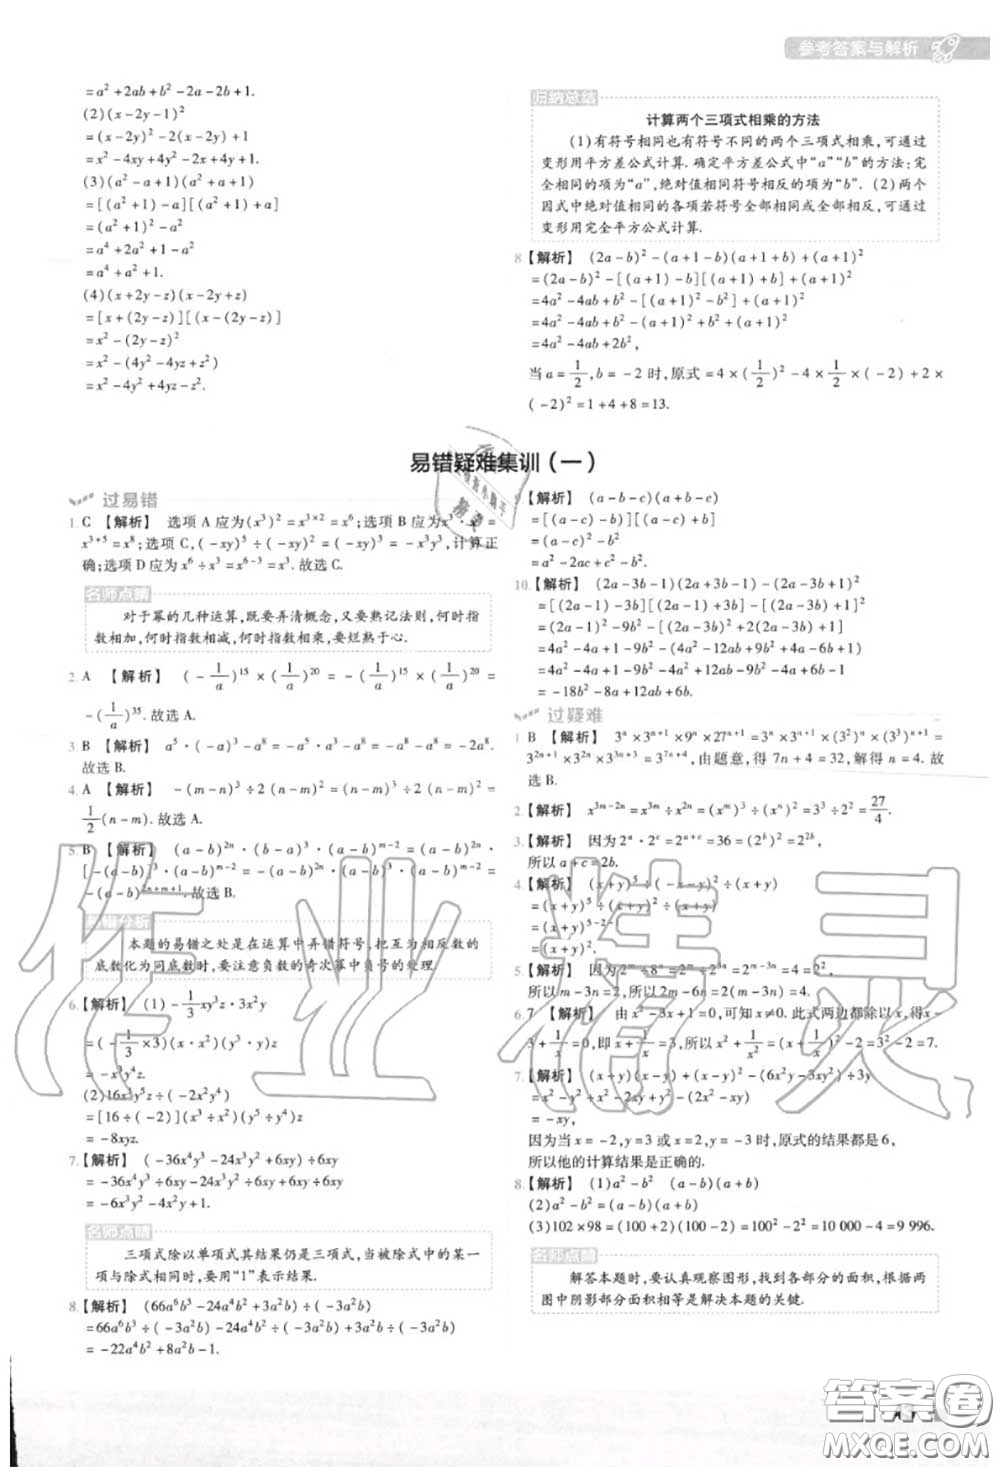 参考答案与解析
=a²+2ab+b²-2a-2b+1.
(2)(x-2y-1)²
=(x-2y)²-2(x-2y)+1
=x²-4xy+4y²-2x+4y+1.
(3)(a²-a+1)(a²+a+1)
=[(a²+1)-a][(a²+1)+a]
=(a²+1)²-a²
=a⁴+2a²+1-a²
=a⁴+a²+1.
(4)(x+2y-z)(x-2y+z)
=[x+(2y-z)][(x-(2y-z)]
=x²-(2y-z)²
=x²-(4y²-4yz+z²)
=x²-4y²+4yz-z².
归纳总结
计算两个三项式相乘的方法
(1)有符号相同也有符号不同的两个三项式相乘,可通过
变形用平方差公式计算.确定平方差公式中“a”“b”的方法:完
全相同的项为“a”,绝对值相同符号相反的项为“b”.(2)两个
因式中绝对值相同的各项若符号全部相同或全部相反,可通过
变形用完全平方公式计算.
8.【解析】 (2a-b)²-(a+1-b)(a+1+b)+(a+1)²
=(2a-b)²-[(a+1)-b][(a+1)+b]+(a+1)²
=4a²-4ab+b²-[(a+1)²-b²]+(a+1)²
=4a²-4ab+b²-(a+1)²+b²+(a+1)²
=4a²-4ab+2b²,
当a=1/2,b=-2时,原式=4×(1/2)²-4×1/2×(-2)+2×
(-2)²=1+4+8=13.
易错疑难集训(一)
过易错
1.C 【解析】 选项A应为(x³)²=x³ˣ²=x⁶;选项B应为x³·x⁵=
x³⁺⁵=x⁸;选项C,(-xy)⁵÷(-xy)²=(-xy)³=-x³y³,计算正
确;选项D应为x⁶÷x³=x⁶⁻³=x³.故选C.
名师点睛
对于幂的几种运算,既要弄清概念,又要熟记法则,何时指
数相加,何时指数相减,何时指数相乘,要烂熟于心.
2.A 【解析】 (-1/a)¹⁵×(1/a)²⁰=-(1/a)¹⁵×(1/a)²⁰=
-(1/a)³⁵.故选A.
3.B 【解析】 a⁵·(-a)³-a⁸=-a⁵·a³-a⁸=-a⁸-a⁸=-2a⁸.
故选B.
4.A 【解析】 -(m-n)³÷2(n-m)²=(n-m)³÷2(n-m)²=
1/2(n-m).故选A.
5.B 【解析】 (a-b)²ⁿ·(b-a)³·(b-a)ᵐ⁻²=(a-b)²ⁿ·
[-(a-b)³]·(b-a)ᵐ⁻²=-(a-b)²ⁿ·(a-b)³·(a-b)ᵐ⁻²
=-(a-b)²ⁿ⁺ᵐ⁺¹.故选B.
易错分析
本题的易错之处是在运算中弄错符号,把互为相反数的
底数化为同底数时,要注意负数的奇次幂中负号的处理.
6.【解析】 (1)-1/3xy²z·3x²y
=(-1/3×3)(x·x²)(y²·y)z
=-x³y³z.
(2)16x³y⁵z÷(-2x²y⁴)
=[16÷(-2)](x³÷x²)(y⁵÷y⁴)z
=-8xyz.
7.【解析】 (-36x⁴y³-24x³y²+6xy)÷6xy
=-36x⁴y³÷6xy-24x³y²÷6xy+6xy÷6xy
=-6x³y²-4x²y+1.
名师点睛
三项式除以单项式其结果仍是三项式,当被除式中的某一
项与除式相同时,要用“1”表示结果.
8.【解析】 (66a⁶b³-24a⁴b²+3a²b)÷(-3a²b)
=66a⁶b³÷(-3a²b)-24a⁴b²÷(-3a²b)+3a²b÷(-3a²b)
=-22a⁴b²+8a²b-1.
【解析】 (a-b-c)(a-b+c)
=[(a-b)-c][(a-b)+c]
=(a-b)²-c²
=a²-2ab+b²-c².
10.【解析】 (2a-3b-1)(2a+3b-1)-(2a-3b+1)²
=[(2a-1)-3b][(2a-1)+3b]-[(2a-3b)+1]²
=(2a-1)²-9b²-[(2a-3b)²+2(2a-3b)+1]
=4a²-4a+1-9b²-(4a²-12ab+9b²+4a-6b+1)
=4a²-4a+1-9b²-4a²+12ab-9b²-4a+6b-1
=-18b²-8a+12ab+6b.
过疑难
1.B 【解析】 3ⁿ×3ⁿ⁺¹×9ⁿ×27ⁿ⁺¹=3ⁿ×3ⁿ⁺¹×(3²)ⁿ×(3³)ⁿ⁺¹=
3²ⁿ⁺¹×3²ⁿ×3³ⁿ⁺³=3⁷ⁿ⁺⁴,由题意,得7n+4=32,解得n=4.故
选B.
2.【解析】 x³ᵐ⁻²ⁿ=x³ᵐ÷x²ⁿ=(xᵐ)³÷(xⁿ)²=3³÷2²=27/4.
3.【解析】 因为2ᵃ·2ᶜ=2ᵃ⁺ᶜ=36=(2ᵇ)²=2²ᵇ,
所以a+c=2b.
4.【解析】 (x+y)⁵÷(-x-y)²÷(x+y)
=(x+y)⁵÷(x+y)²÷(x+y)
=(x+y)⁵⁻²⁻¹
=(x+y)².
5.【解析】 因为2ᵐ÷8ⁿ=2ᵐ÷2³ⁿ=2ᵐ⁻³ⁿ=4=2²,
所以m-3n=2,所以2m-6n=2(m-3n)=4.
6.7 【解析】 由x²-3x+1=0,可知x≠0.此式两边都除以x,得x-
3+1/x=0,即x+1/x=3,所以x²+1/x²=(x+1/x)²-2=3²-2=7.
7.【解析】 (x+y)(x-y)+(x-y)²-(6x²y-3xy²)÷3y
=x²-y²+x²-2xy+y²-(2x²-xy)
=-xy,
因为当x=-2,y=3或x=2,y=-3时,原式的结果都是6,
所以他的计算结果是正确的.
8.【解析】 (1)a²-b² (a-b)(a+b)
(2)a²-b²=(a-b)(a+b)
(3)102×98=(100+2)(100-2)=100²-2²=10 000-4=9 996.
名师点睛
解答本题时,要认真观察图形,找到各部分的面积,根据两
图中阴影部分面积相等是解决本题的关键.
作业精灵
答案圈
MXQE.COM